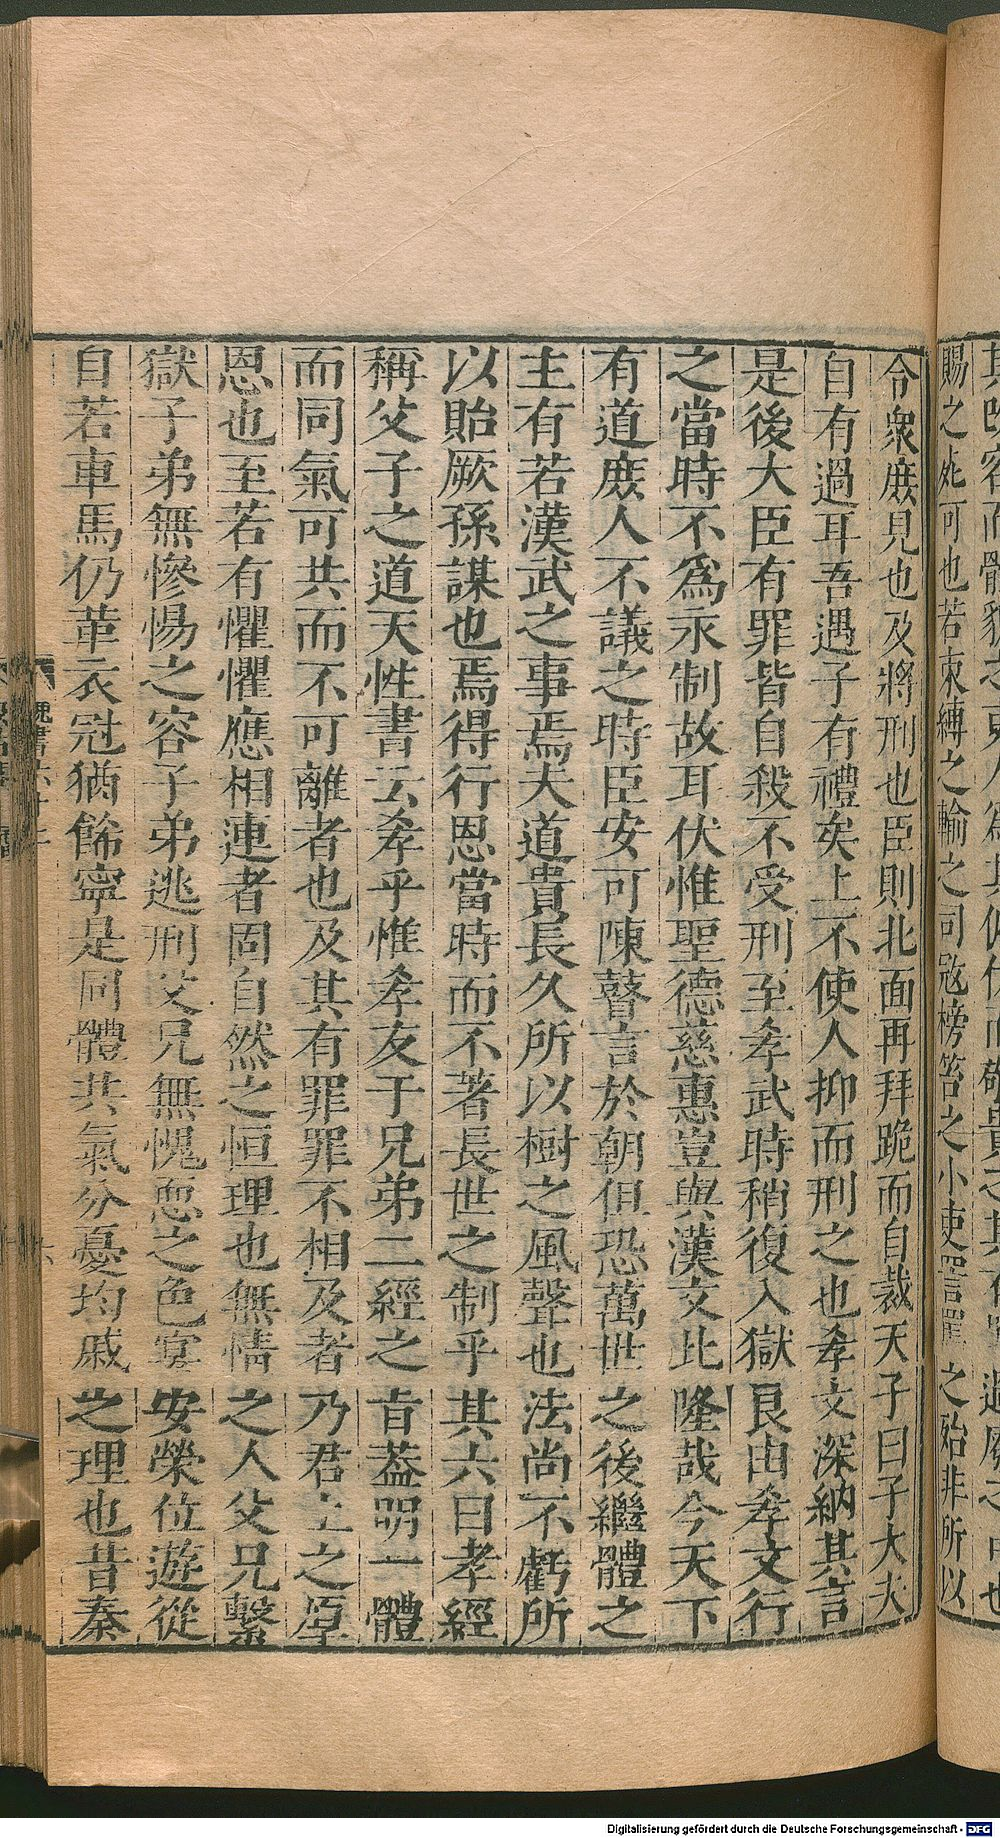 賜之死可也若束縛之輸之司寇榜笞之小吏詈罵之殆非所以
令衆庶見也及將刑也臣則北面再拜跪而自裁天子曰子大夫
自有過耳吾遇子有禮矣上不使人抑而刑之也孝文深納其言
是後大臣有罪皆自殺不受刑至孝武時稍復入獄良由孝文行
之當時不為永制故耳伏惟聖德慈惠豈與漢文比隆哉今天下
有道庶人不議之時臣安可陳瞽言於朝但恐萬世之後繼體之
主有若漢武之事焉夫道貴長久所以樹之風聲也法尚不虧所
以貽厥孫謀也焉得行恩當時而不著長世之制乎其六曰孝經
稱父子之道天性書云孝乎惟孝友于兄弟二經之旨葢明一體
而同氣可共而不可離者也及其有罪罪不相及者乃君上之厚
恩也至若有懼懼應相連者固自然之恒理也無情之人父兄繫
獄子弟無慘惕之容子弟逃刑父兄無愧恧之色宴安榮位遊從
自若車馬仍華衣冠猶飾寧是同體共氣分憂均戚之理也昔秦
Digitalisierung gefördert durch die Deutsche Forschungsgemeinschaft - DFG